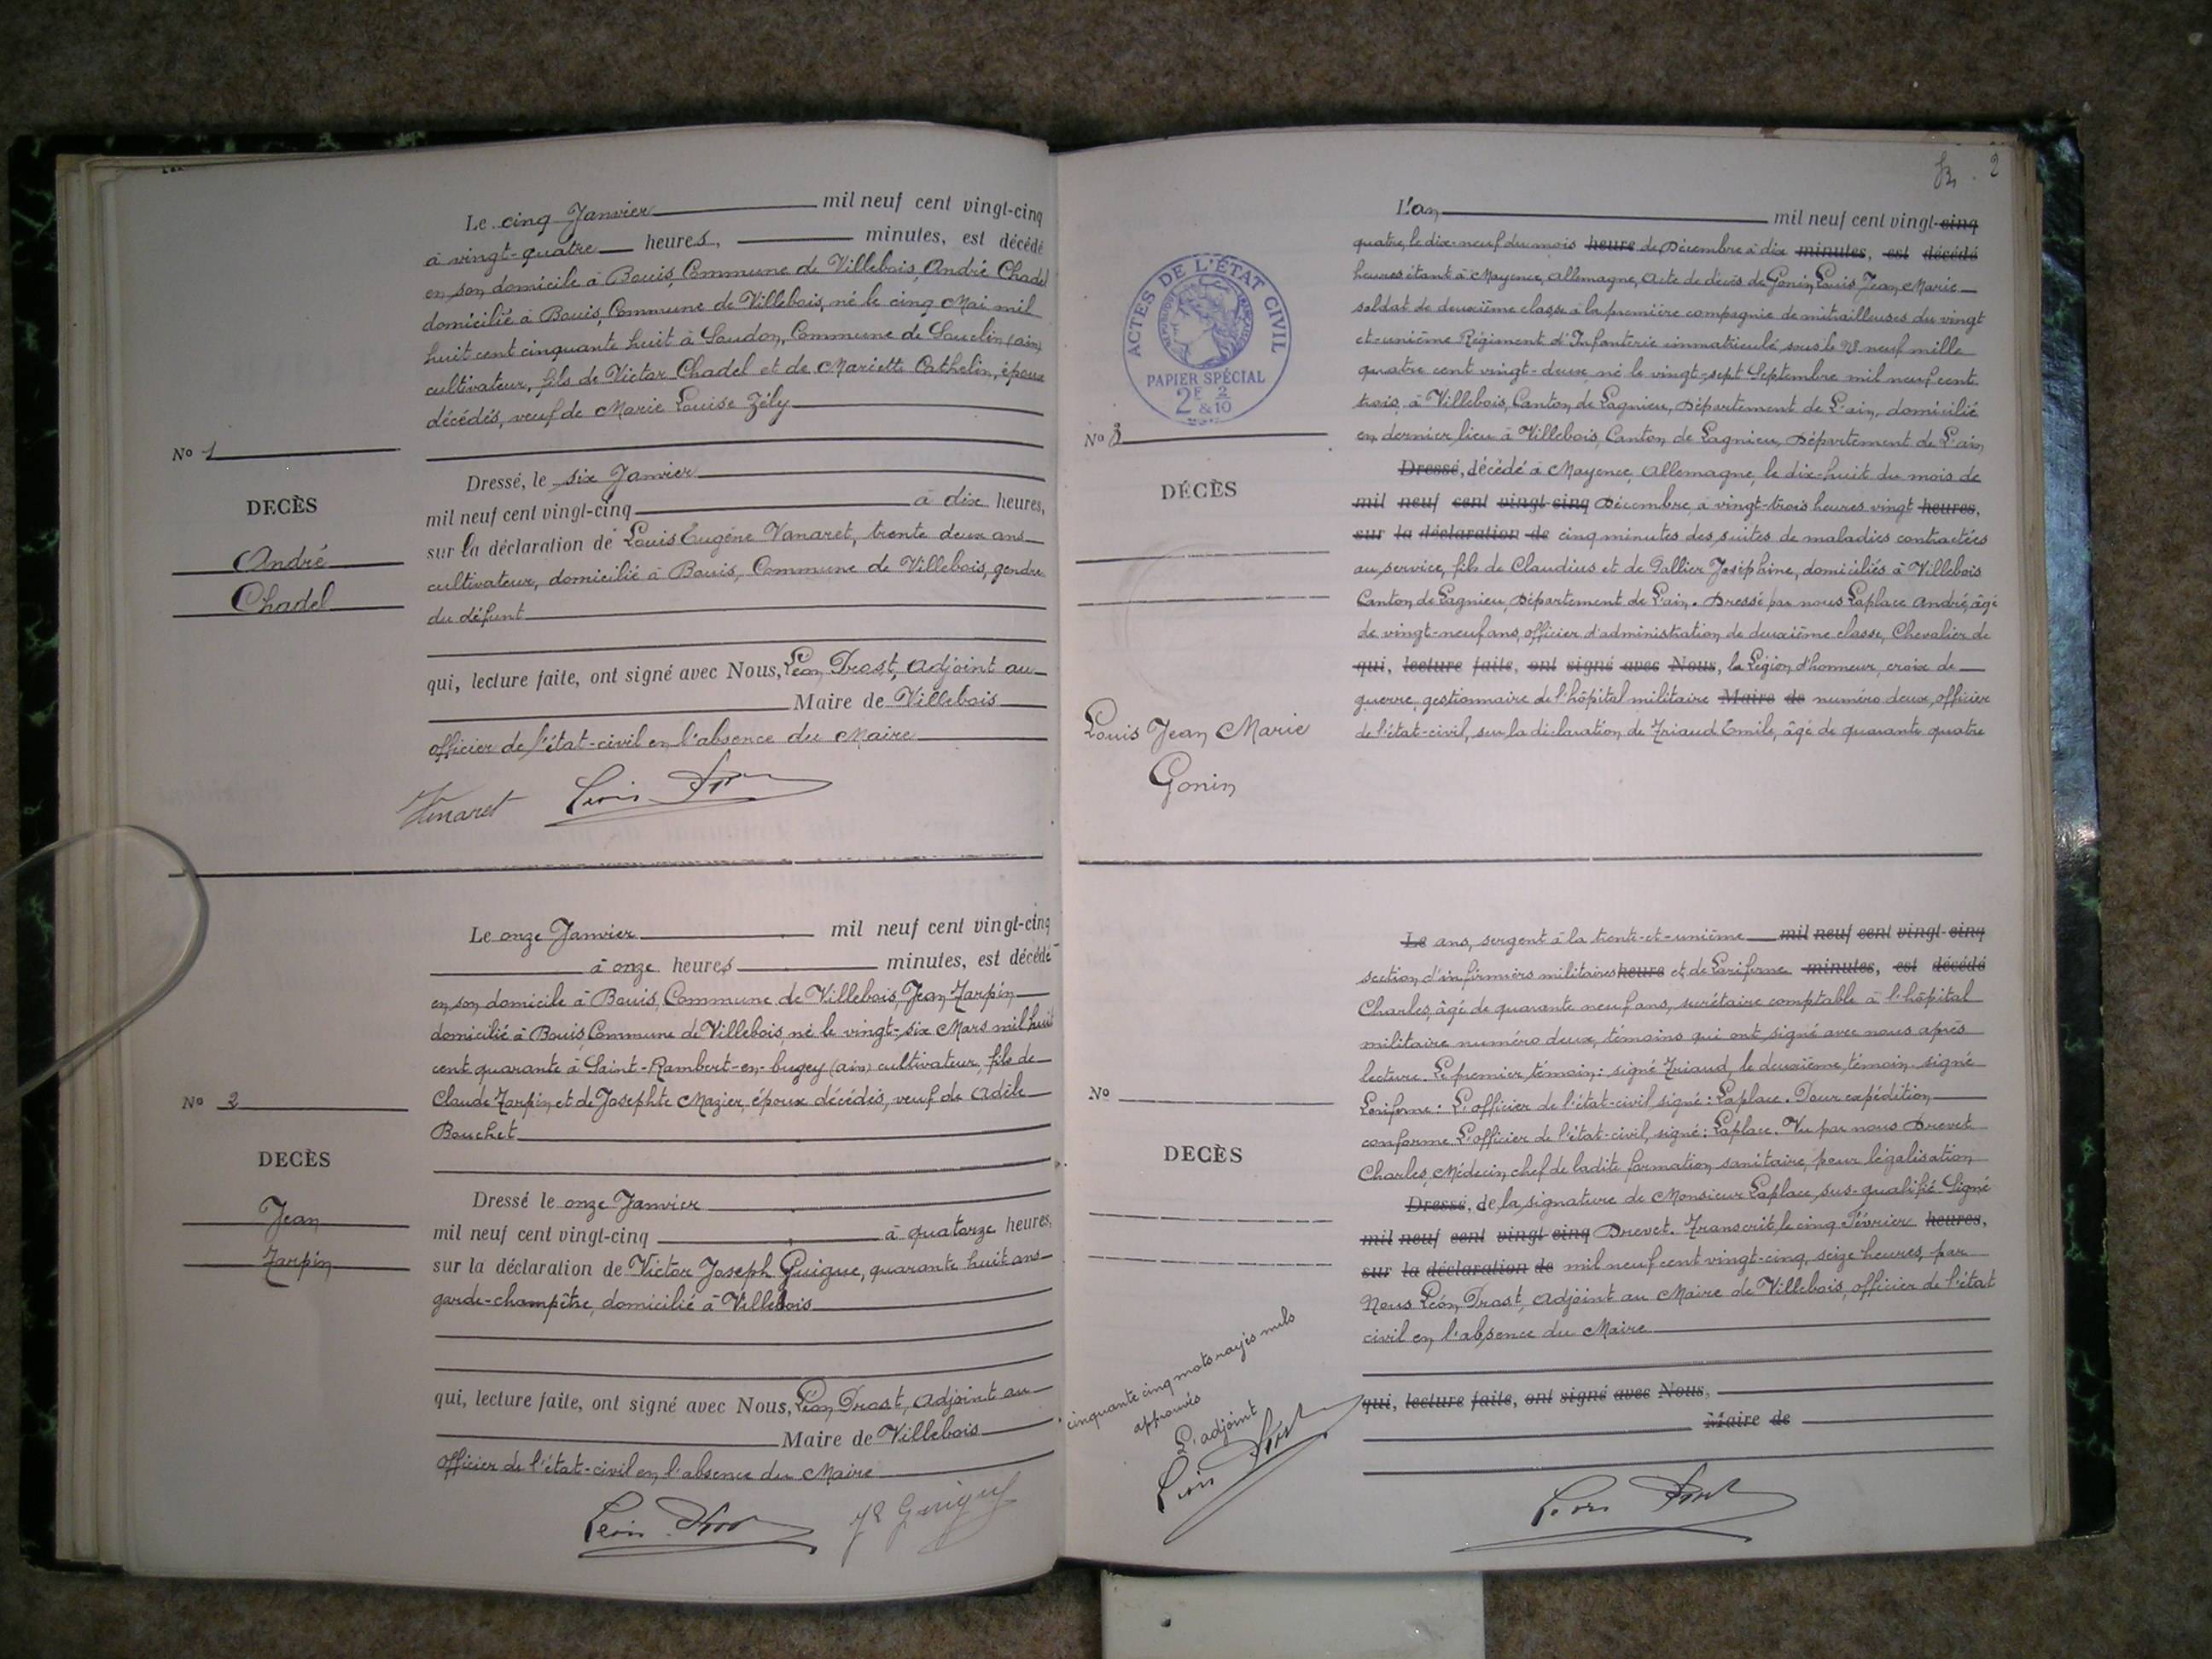 Le cinq Janvier mil neuf cent vingt-cinq
à vingt-quatre heures, minutes, est décédé
en son domicile à Bouis, Commune de Villebois, André Chadel
domicilié à Bouis, Commune de Villebois, né le cinq Mai mil
huit cent cinquante huit à Soudon, Commune de Souclin (ain)
cultivateur, fils de Victor Chadel et de Mariette Cathelin, époux
décédés, veuf de Marie Louise Zély
No 1
Dressé, le six Janvier
mil neuf cent vingt-cinq à dix heures,
DECÈS
sur la déclaration de Louis Eugène Vanaret, trente deux ans
André
cultivateur, domicilié à Bouis, Commune de Villebois, gendre
Chadel
du défunt
qui, lecture faite, ont signé avec Nous, Léon Trost, adjoint au
Maire de Villebois
officier de l'état-civil en l'absence du Maire
Vanaret Léon Trost
Le onze Janvier mil neuf cent vingt-cinq
à onze heures minutes, est décédé
en son domicile à Bouis, Commune de Villebois, Jean Tarpin
domicilié à Bouis, Commune de Villebois, né le vingt-six Mars mil huit
cent quarante à Saint-Rambert-en-bugey (ain) cultivateur, fils de
No 2
Claude Tarpin et de Josephte Mazier, époux décédés, veuf de Adèle
Bouchet
DECÈS
Dressé le onze Janvier
Jean
mil neuf cent vingt-cinq à quatorze heures,
Tarpin
sur la déclaration de Victor Joseph Guigue, quarante huit ans
garde-champêtre, domicilié à Villebois
qui, lecture faite, ont signé avec Nous, Léon Trost, adjoint au
Maire de Villebois
officier de l'état-civil en l'absence du Maire
Léon Trost Guigue
2
ACTES DE L'ÉTAT CIVIL
PAPIER SPÉCIAL
2F 2
&10
L'an mil neuf cent vingt-cinq
quatre, le dix-neuf du mois heure de Décembre à dix minutes, est décédé
heures étant à Mayence, Allemagne, Acte de décès de Gonin, Louis Jean Marie
soldat de deuxième classe à la première compagnie de mitrailleuses du vingt
et-unième Régiment d'Infanterie immatriculé sous le No neuf mille
quatre cent vingt-deux, né le vingt-sept Septembre mil neuf cent
trois, à Villebois, Canton de Lagnieu, Département de L'ain, domicilié
No 3
en dernier lieu à Villebois, Canton de Lagnieu, Département de L'ain
Dressé, décédé à Mayence, Allemagne, le dix-huit du mois de
DÉCÈS
mil neuf cent vingt-cinq Décembre, à vingt-trois heures vingt heures,
sur la déclaration de cinq minutes des suites de maladies contractées
au service, fils de Claudius et de Gallier Joséphine, domiciliés à Villebois
Canton de Lagnieu, Département de L'ain. Dressé par nous Laplace André, âgé
de vingt-neuf ans, officier d'administration de deuxième classe, Chevalier de
qui, lecture faite, ont signé avec Nous, la Légion d'honneur, croix de
guerre, gestionnaire de l'hôpital militaire Maire de numéro deux, officier
Louis Jean Marie
de l'état-civil, sur la déclaration de Triaud Emile, âgé de quarante quatre
Gonin
Le ans, sergent à la trente-et-unième mil neuf cent vingt-cinq
section d'infirmiers militaires heure et de Lariforne minutes, est décédé
Charles, âgé de quarante neuf ans, secrétaire comptable à l'hôpital
militaire numéro deux, témoins qui ont signé avec nous après
lecture. Le premier témoin: signé Triaud, le deuxième témoin signé
No
Lariforne: L'officier de l'état-civil signé: Laplace. Pour expédition
conforme L'officier de l'état-civil, signé: Laplace. Vu par nous Drevet
DECÈS
Charles, Médecin chef de ladite formation sanitaire, pour légalisation
Dressé, de la signature de Monsieur Laplace, sus-qualifié. Signé
mil neuf cent vingt-cinq Drevet. Transcrit, le cinq Février heures,
sur la déclaration de mil neuf cent vingt-cinq, seize heures, par
Nous Léon Trost, adjoint au Maire de Villebois, officier de l'état
civil en l'absence du Maire
cinquante cinq mots rayés nuls
approuvés
L'adjoint
Léon Trost
qui, lecture faite, ont signé avec Nous,
Maire de
Léon Trost